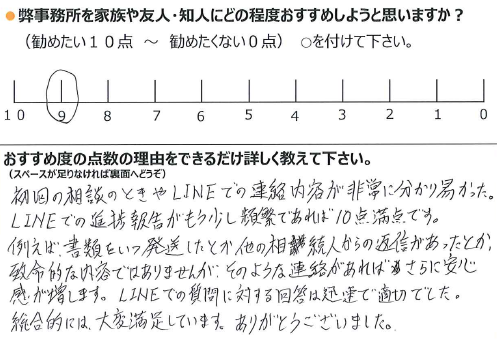 ● 弊事務所を家族や友人・知人にどの程度おすすめしようと思いますか？
（勧めたい１０点　～　勧めたくない０点）　○を付けて下さい。
10 9 8 7 6 5 4 3 2 1 0
おすすめ度の点数の理由をできるだけ詳しく教えて下さい。
（スペースが足りなければ裏面へどうぞ）
初回の相談のときやLINEでの連絡内容が非常に分かり易かった。
LINEでの進捗報告がもう少し頻繁であれば10点満点です。
例えば、書類をいつ発送したとか他の相続人からの返信があったとか、
致命的な内容ではありませんが、そのような連絡があればさらに安心
感が増します。LINEでの質問に対する回答は迅速で適切でした。
総合的には、大変満足しています。ありがとうございました。